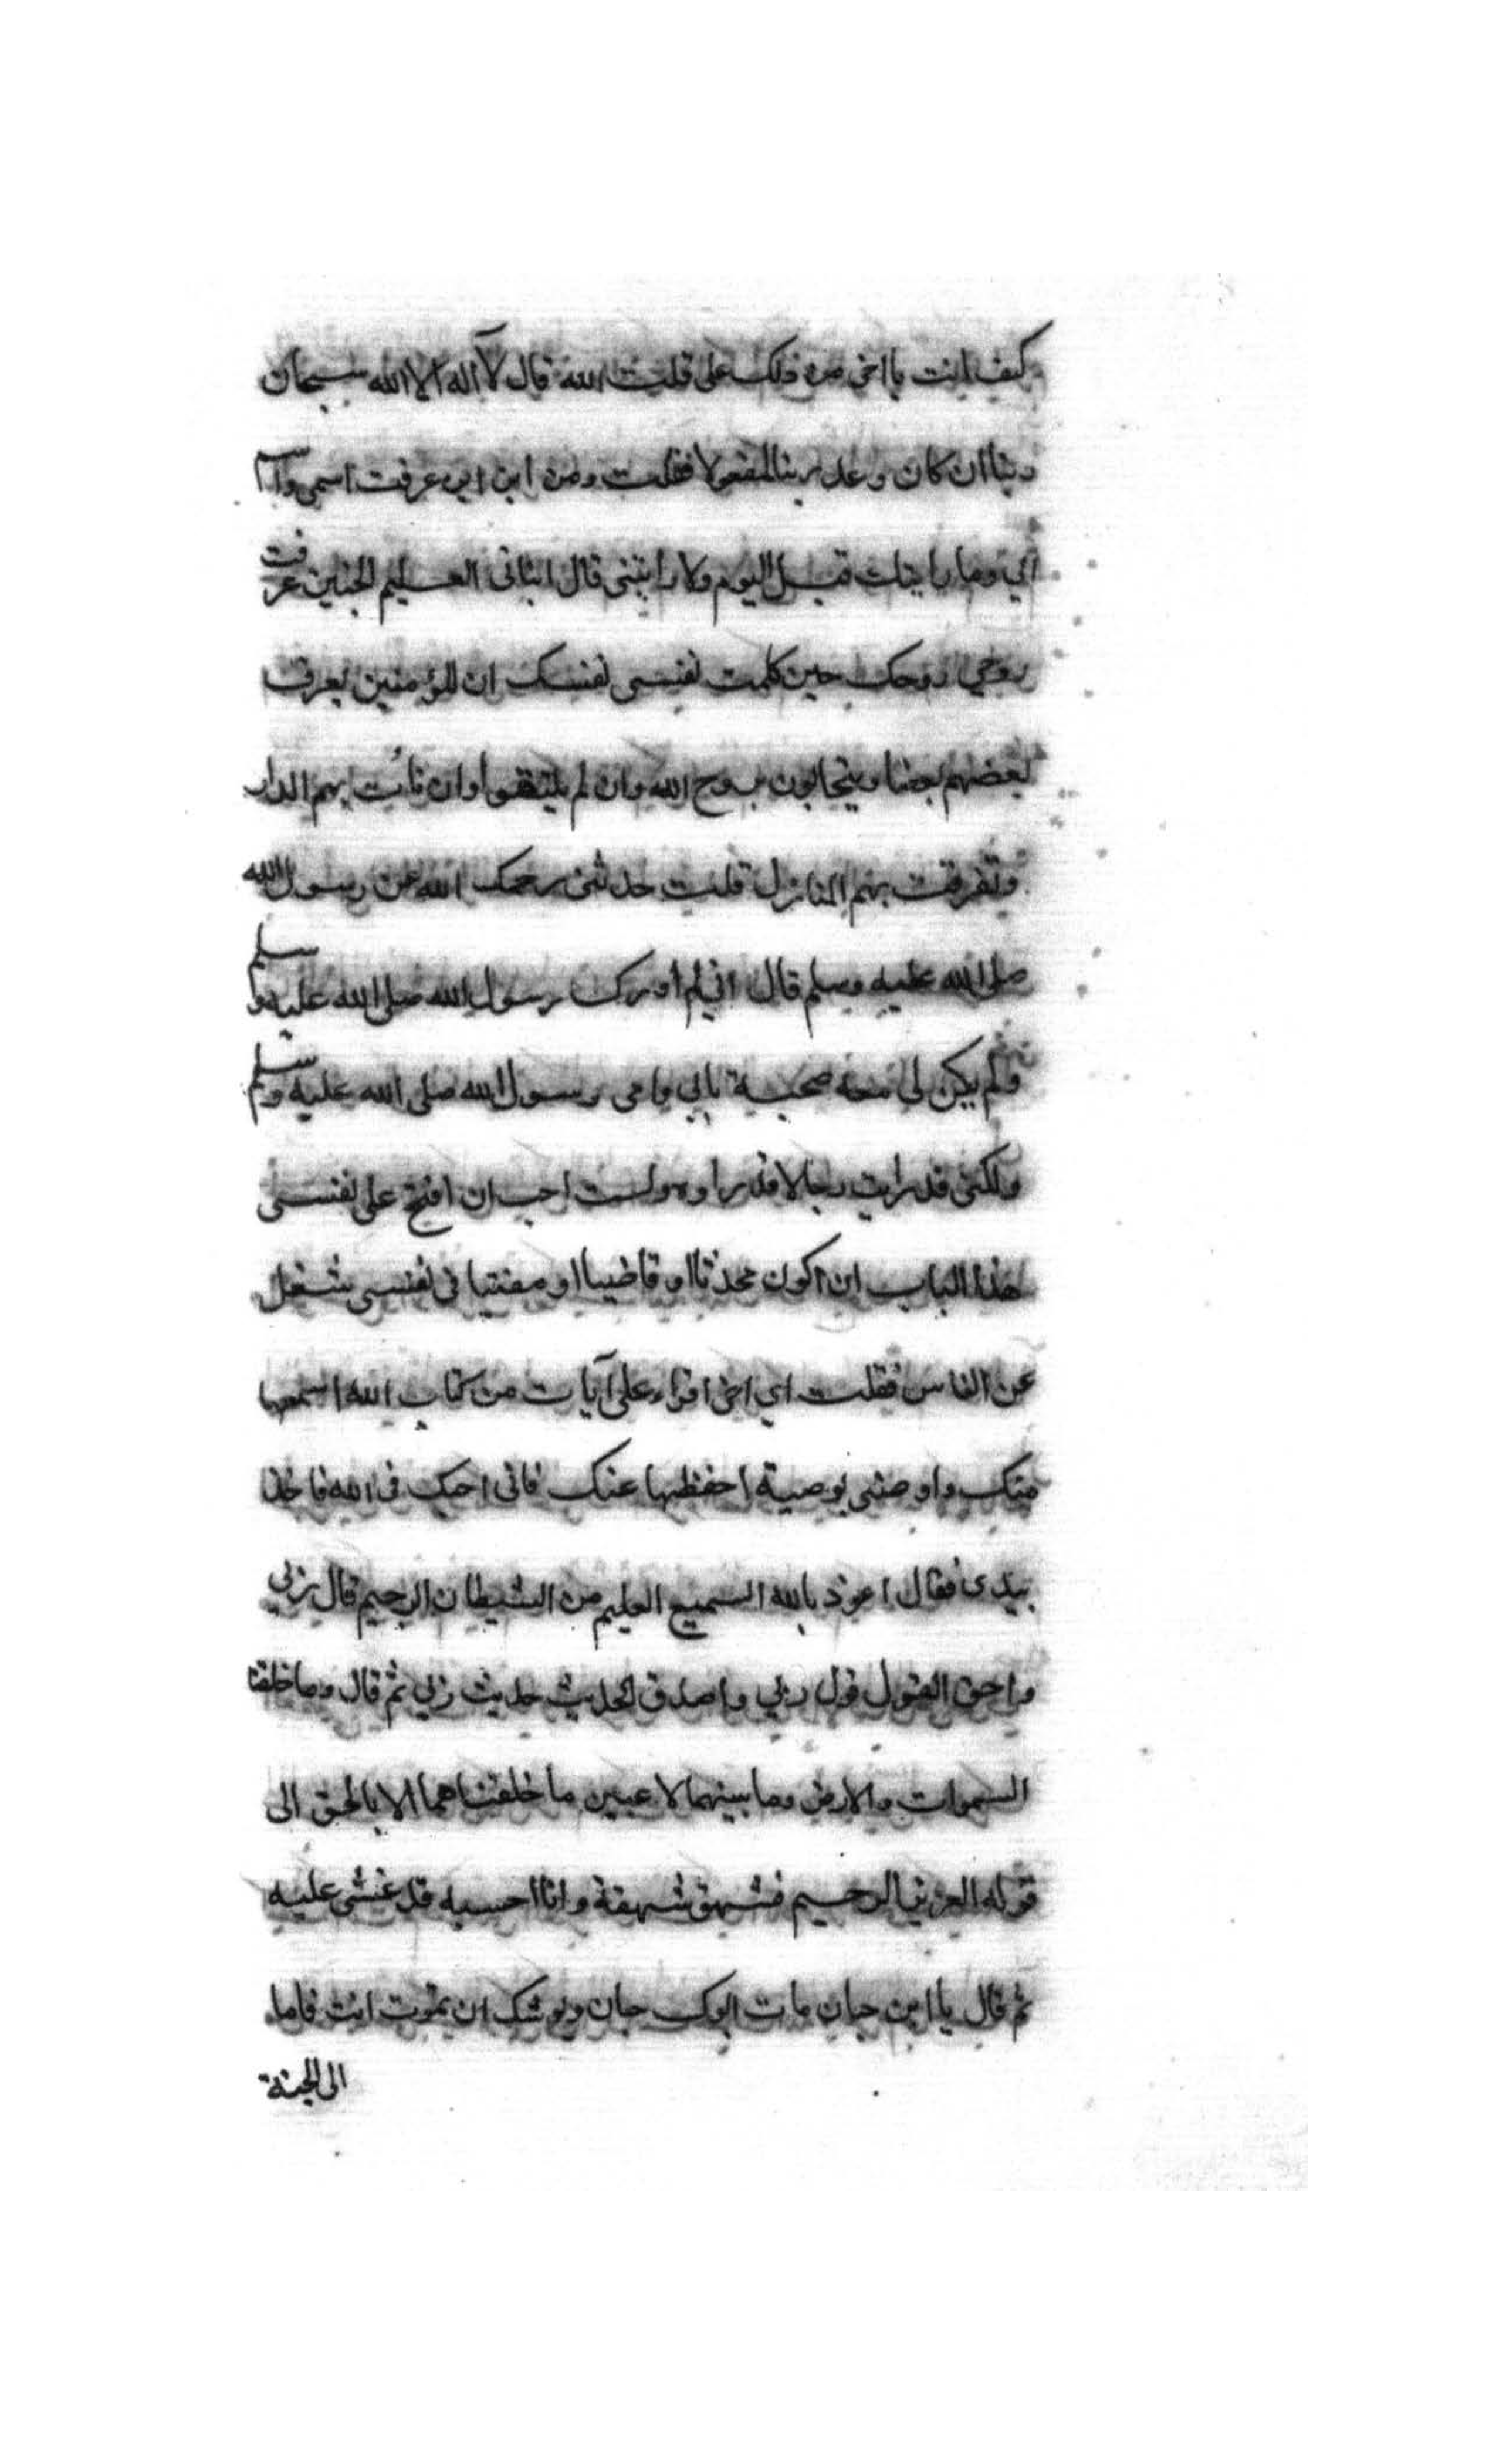 كيف انت يا اخي من دلك علي قلت الله قال لآ اله الا الله سبحان
ربنا ان كان وعد ربنا لمفعولا فقلت ومن اين اي عرفت اسمي واسم
ابي وما رايتك قبل اليوم ولا رايتني قال انباني العليم الخبير عرفت
روحي روحك حين كلمت نفسي نفسك ان المؤمنين يعرف
بعضهم بعضا ويتحابون بروح الله وان لم يلتقوا وان نائت بهم الدار
وتفرقت بهم المنازل قلت حدثني يرحمك الله عن رسول الله
صلى الله عليه وسلم قال اني لم ادرك رسول الله صلى الله عليه وسلم
ولم يكن لي معه صحبة بابي وامي رسول الله صلى الله عليه وسلم
ولكني قد رايت رجالا قد راوه ولست احب ان افتح على نفسي
هذا الباب ان اكون محدثا او قاضيا او مفتيا في نفسي شغل
عن الناس فقلت اي اخي اقراء على آيات من كتاب الله اسمعها
منك واوصني بوصية احفظها عنك فاني احبك في الله فاخذ
بيدي فقال اعوذ بالله السميع العليم من الشيطان الرجيم قال ربي
واحق القول قول ربي واصدق الحديث حديث ربي ثم قال وما خلقنا
السموات والارض وما بينهما لاعبين ما خلقناهما الا بالحق الى
قوله العزيز الرحيم فشهق شهقة وانا احسبه قد غشي عليه
ثم قال يا ابن حيان مات ابوك حيان ويوشك ان تموت انت فاما
الى الجنة